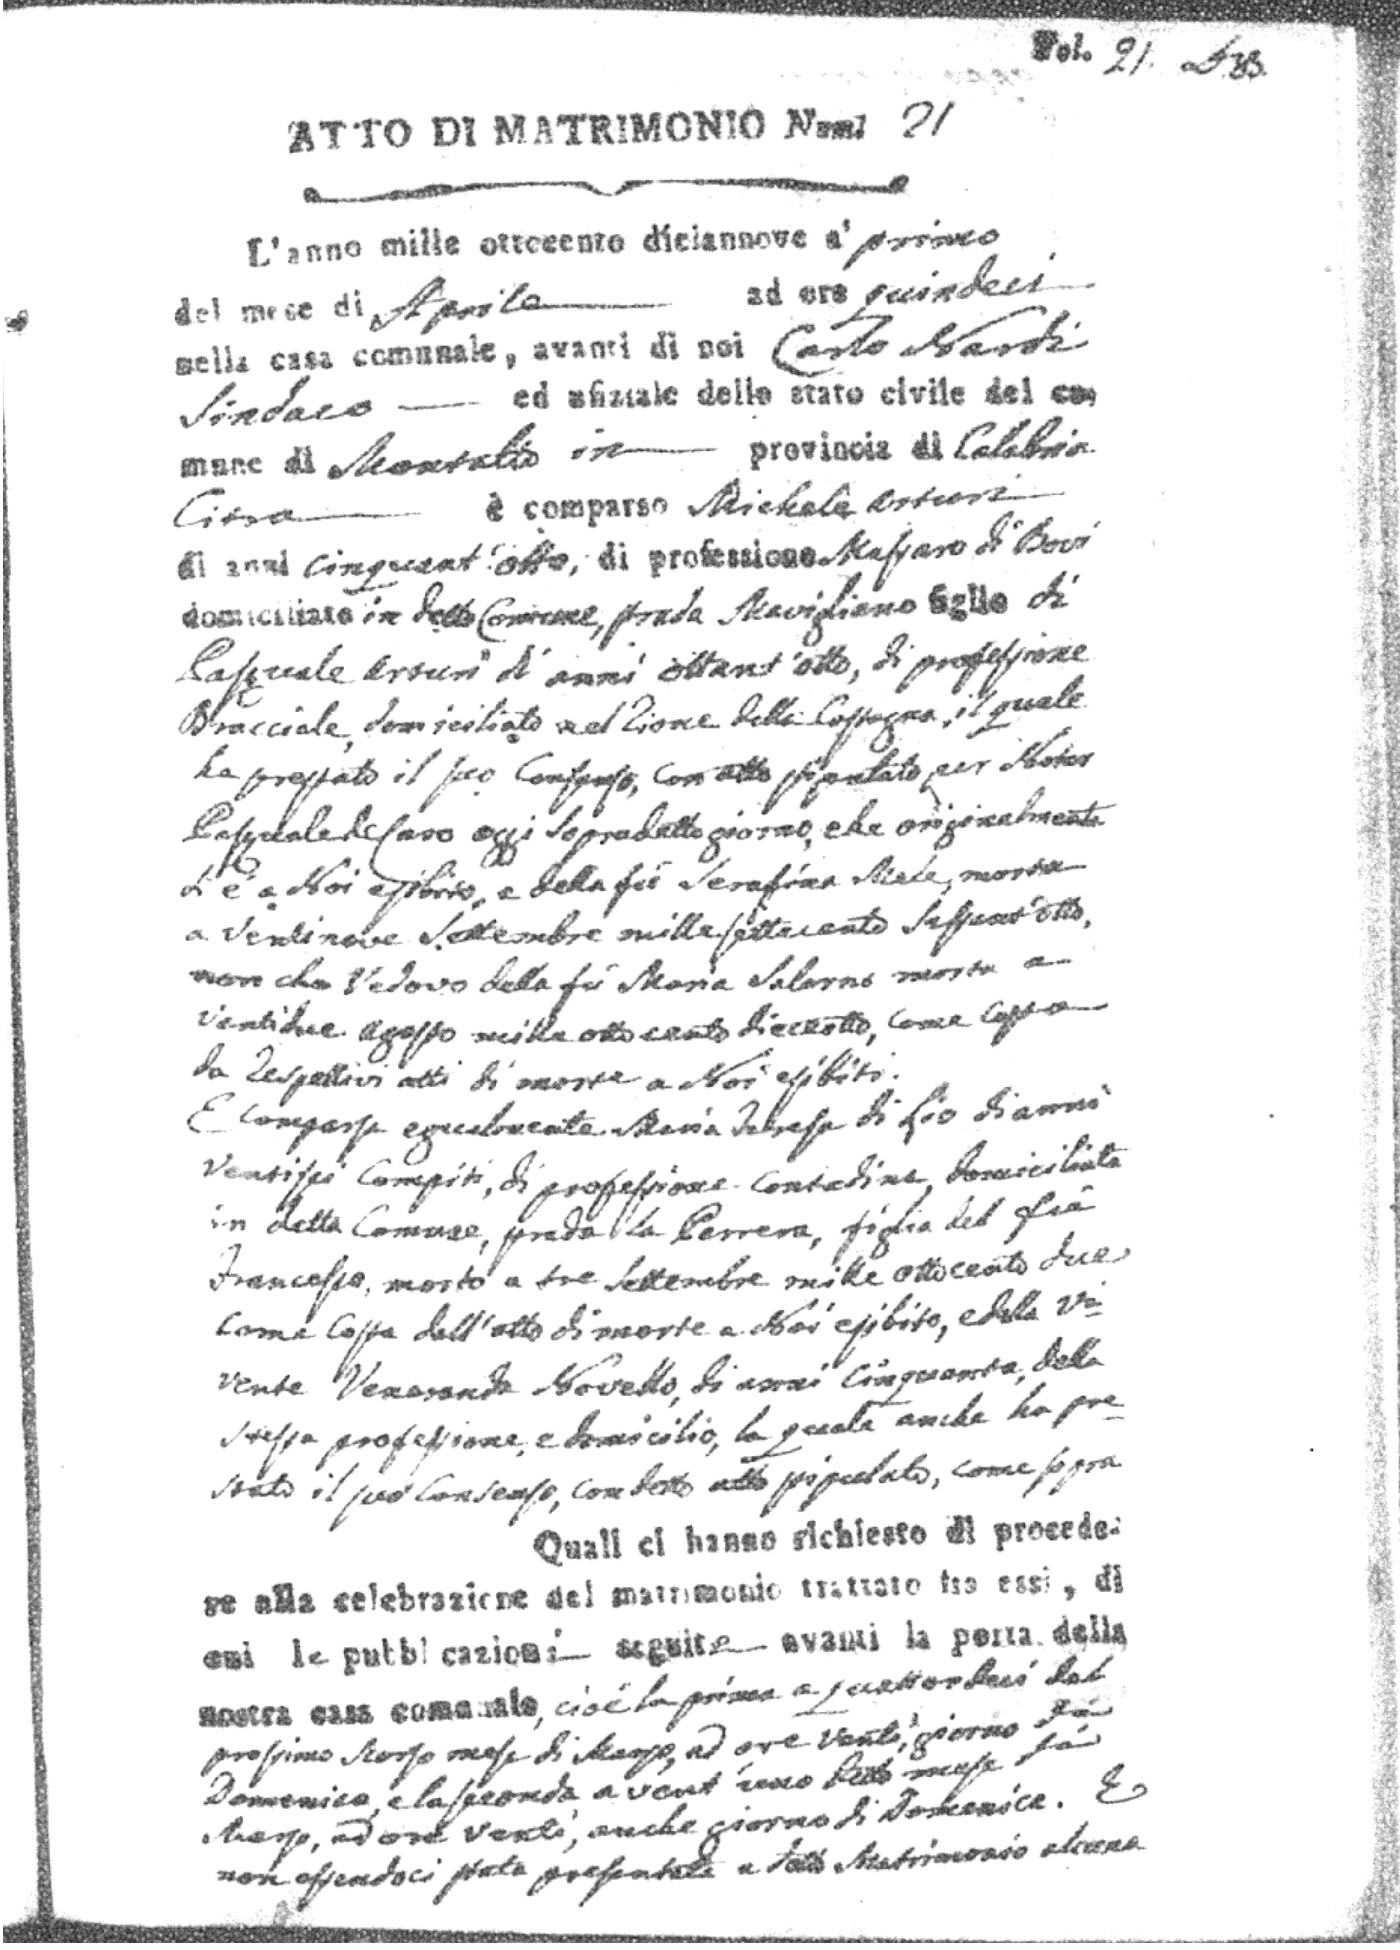 Fol. 21.
ATTO DI MATRIMONIO Num! 21
L'anno mille ottocento diciannove a' primo
del mese di Aprile ad ore quindeci
nella casa comunale, avanti di noi Carlo Nardi
Sindaco ed ufiziale dello stato civile del co-
mune di Montalto in provincia di Calabria
Citra è comparso Michele Arturi
di anni cinquant'otto, di professione Massaro di Bovi
domiciliato in detto Comune, strada Mavigliano figlio di
Pasquale Arturi di anni ottant'otto, di professione
Bracciale, domiciliato nel Rione della Costagna, il quale
ha prestato il suo Consenso, con atto stipulato per Notar
Pasquale de Caro oggi sopradetto giorno, che originalmente
si è a Noi esibito, e della fù Serafina Mele, morta
a ventinove Settembre mille settecento sessant'otto,
non che Vedovo della fù Maria Salerno morta a
ventidue Agosto mille ottocento dieciotto, come costa
da respettivi atti di morte a Noi esibiti.
E comparsa egualmente Maria Teresa di Lio di anni
ventisei compiti, di professione contadina, domiciliata
in detta Comune, strada la Perrera, figlia del fù
Francesco, morto a tre Settembre mille ottocento due
come costa dall'atto di morte a Noi esibito, e della vi-
vente Veneranda Novello, di anni cinquanta, della
stessa professione, e domicilio, la quale anche ha pre-
stato il suo Consenso, con detto atto stipulato, come sopra
Quali ci hanno richiesto di procede-
re alla celebrazione del matrimonio trattato fra essi, di
cui le pubblicazioni seguite avanti la porta della
nostra casa comunale, cioè la prima a quattordeci del
prossimo scorso mese di Marzo, ad ore venti, giorno di
Domenica, e la seconda a vent'uno detto mese di
Marzo, ad ore venti, anche giorno di Domenica. E
non essendoci stata presentata a detto Matrimonio alcuna